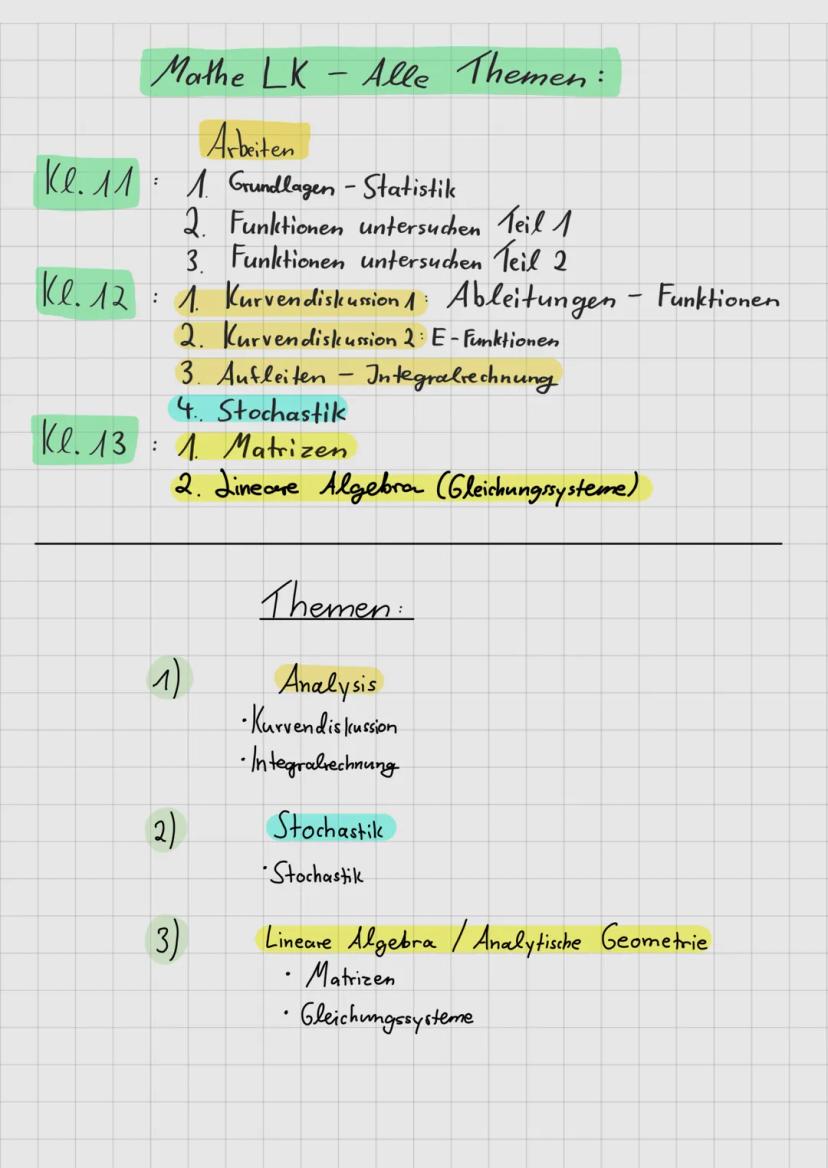 Mathe LK - Alle Themen:
Arbeiten
Kl. 11 : 1. Grundlagen - Statistik
2. Funktionen untersuchen Teil 1
3. Funktionen untersuchen Teil 2
Kl. 12 : 1. Kurvendiskussion 1: Ableitungen - Funktionen
2. Kurvendiskussion 2: E-Funktionen
3. Aufleiten - Integralrechnung
4. Stochastik
Kl. 13 : 1. Matrizen
2. Lineare Algebra (Gleichungssysteme)
Themen:
1) Analysis
· Kurvendiskussion
· Integralrechnung
2) Stochastik
· Stochastik
3) Lineare Algebra / Analytische Geometrie
· Matrizen
· Gleichungssysteme